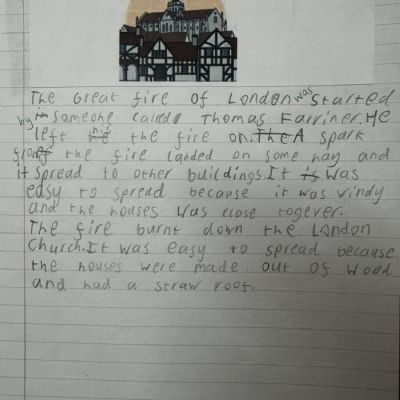 The Great fire of London was started
by someone called Thomas Farriner. He
left his the fire on. The A spark
from the fire landed on some hay and
it spread to other buildings. It is was
easy to spread because it was windy
and the houses was close togever.
The fire burnt down the London
Church. It was easy to spread because
the houses were made out of wood
and had a straw roof.